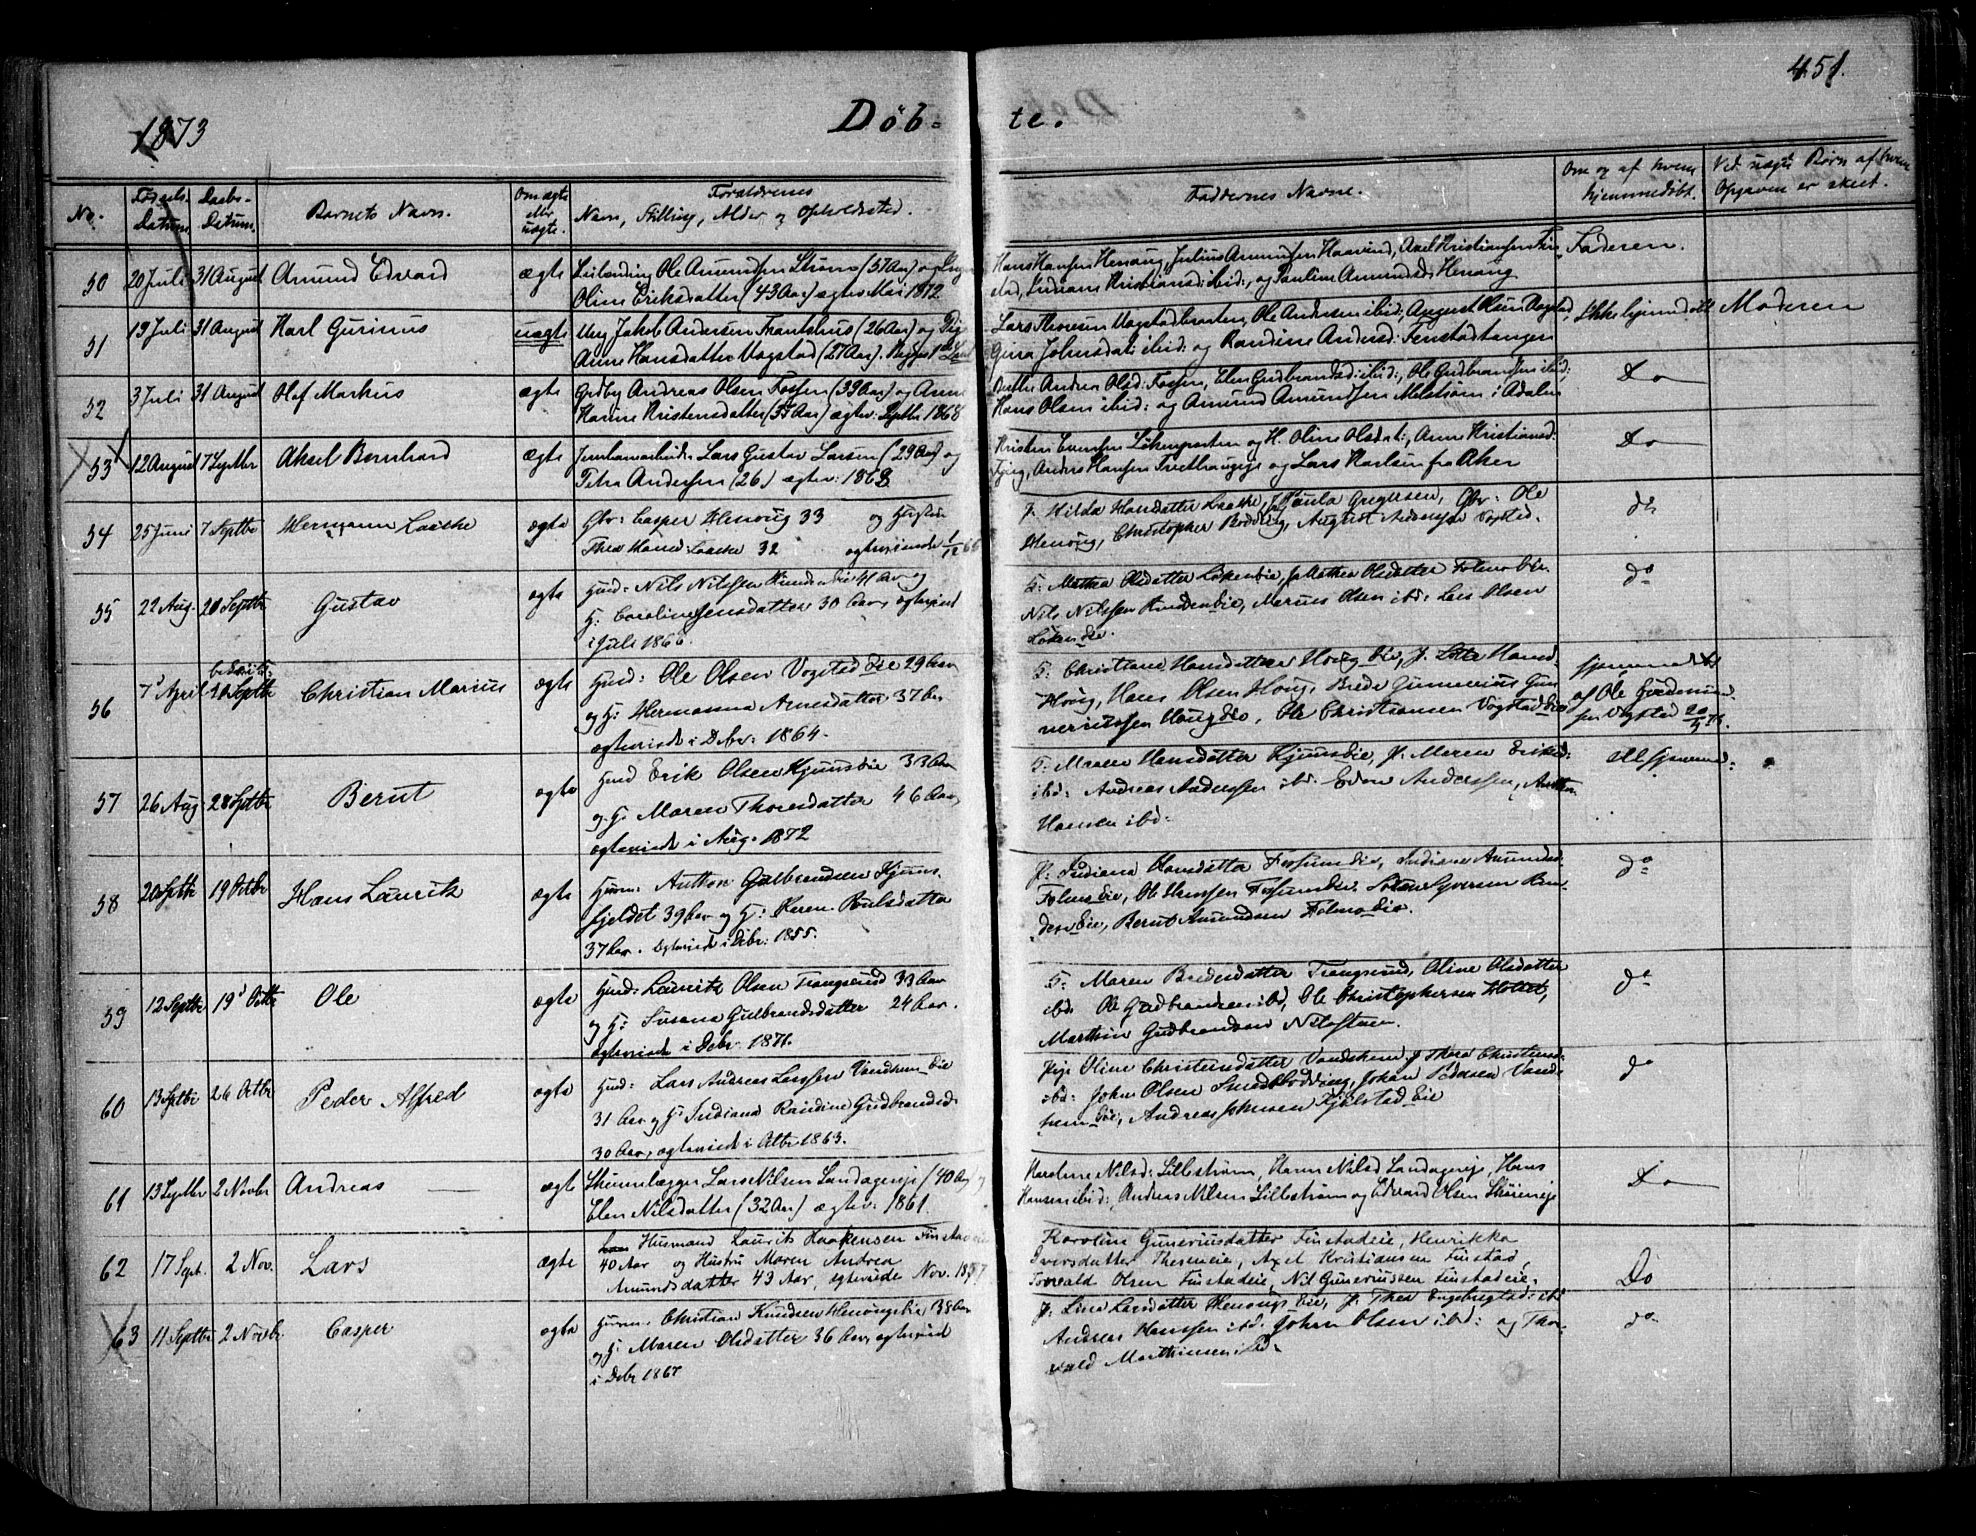 451.
1873
Döb- te.
No. Fødsels- Datum Daabs- Datum. Barnets Navn. Om ægte eller uægte. Forældrenes Navn, Stilling, Alder og Opholdssted. Faddernes Navne. Om og af hvem hjemmedøbt. Ved uægte Børn af hvem Opgaven er skeet.
50 20 Juli 31 August Amund Edvard ægte Leilending Ole Amundsen Strøm (37 Aar) og
Oline Eriksdatter (43 Aar) ægtev. Mai 1872
Hans Hansen Henoug, Julius Amundsen Haavind, Axel Kristiansen
stad, Indiane Kristiansd: ibid:, og Pauline Amundsd: Henoug
Faderen.
51 13 Juli 31 August Karl Gurinus uægte Ung Jakob Andersen Frantshus (26 Aar) og Pig
Anne Hansdatter Vogstad (27 Aar).
Lars Thoresen Vogstadbraaten, Ole Andersen ibid:, August Olsen Vogstad,
Gina Johnsdat: ibid: og Randine Andersd: Fenstadtangen
Ikke hjemmedøbt Moderen
52 3 Juli 31 August Olaf Markus ægte Grdby Andreas Olsen Fossen (39 Aar) og Anne
Karine Kristensdatter (37 Aar) ægtev: Septbr 1868
Dorthe Andrea Olsd: Fossen, Elen Gudbrandsd: ibid:, Ole Gudbrandsen ibid:,
Hans Olsen ibid: og Amund Amundsen Melstrøm i Adalen
Do
53 12 August 7 Septbr Aksel Bernhard ægte Jernbanearbeider Lars Gustav Larsen (29 Aar) og
Petra Andersen (26) ægtev: 1868
Kristen Evensen Løkengaarden og H. Oline Olsdat:, Anne Kristiansd:
Anders Hansen og Lars Karlsen fra Aker
Do
54 25 Juni 7 Septbr Hermann Laache ægte Gbr: Casper Henoug 33 og Hustru
Thea Hansd: Laache 32 ægteviede 1/12 66
P. Hilda Hansdatter Laache, P. Paula Gregersen, Gbr: Ole
Henoug, Christopher Bodding, August Andersen Vogstad.
do
55 22 Aug. 20 Septbr Gustav ægte Husd: Nils Nilssen eie 41 Aar og
H: Caroline Jensdatter 30 Aar, ægteviede
i Juli 1866.
G: Mathea Olsdatter Løkeneie, P. Mathea Olsdatter Folmoeie.
Nils Nilssen eie, Marius Olsen ibd: Lars Olsen
Løkeneie.
do
56 7 April 10 Septbr Christian Marius ægte Husd: Ole Olsen Vogstadeie 29 Aar
og H: Hermanna Arnesdatter 37 Aar
ægteviede i Debr: 1864.
G: Christiane Hansdatter Houg eie, P. Lota Hansd:
Houg, Hans Olsen Houg, Brede Gunnerius Gun-
neriussen Hougeie, Ole Christiansen Vogstadeie
hjemmedøbt
af Ole
sen Vogstad 20/4 73.
57 26 Aug 28 Septbr Bernt ægte Husd Erik Olsen Kjunseie 33 Aar
og H: Maren Thoresdatter 46 Aar,
ægteviede i Aug: 1872
G: Maren Hansdatter Kjunseie, P. Maren Eriksd:
ibd: Andreas Anderssen ibd. Even Anderssen, Anthon
Hansen ibd:
Ikke hjemmed:
58 20 Septbr 19 Octbr Hans Laurits ægte Husm: Anthon Gulbrandsen Kjuns-
fjeldet 39 Aar og H: Karen Poulsdatter
37 Aar. ægteviede i Debr: 1855.
P. Indiana Hansdatter Fossumeie, Indiane Amundsd:
Folmoeie, Ole Hanssen Fossumeie, Søren Syversen
eie, Bernt Amundsen Folmoeie.
do
59 12 Septbr 19 Octbr Ole ægte Husd: Lauritz Olsen Trangsrud 33 Aar
og H: Susana Gulbrandsdatter 24 Aar.
ægteviede i Debr 1871.
G: Maren Bredesdatter Trangsrud, Oline Olsdatter
ibd. Ole Gudbrandsen ibd, Ole Christophersen Holtet,
Marthin Gudbrandsen
do
60 13 Septbr 26 Octbr Peder Alfred ægte Husd: Lars Andreas Larssen Vandhemeie
31 Aar og H: Indiana Randine Gudbrandsd:
30 Aar, ægteviede i Octbr 1863.
Pige Oline Christensdatter Vandhem, P. Thora Christensd:
ibd: Johan Olsen Smedbodding, Johan Pedersen Vand-
hemeie, Andreas Johnsen Fjelstadeie
do
61 13 Septbr 2 Novbr Andreas ægte Skinnelægger Lars Nilsen Landageie (40 Aar) og
Elen Nilsdatter (32 Aar) ægtev: 1861.
Karoline Nilsd: Lillestrøm, Karen Nilsd Landageie, Hans
Hansen ibid: Andreas Nilsen Lillestrøm og Edvard Olsen
Do
62 17 Sept. 2 Nov. Lars ægte Husmand Laurits Haakensen Finstadeie
40 Aar og Hustru Maren Andrea
Amundsdatter 43 Aar, ægteviede Nov. 1857
Karoline Guneriusdatter Finstadeie, Henrikka
Iversdatter Theseneie, Axel Kristiansen Finstad,
Torvald Olsen Finstadeie, Nil Guneriussen Finstadeie.
Do
63 11 Septbr 2 Novbr Casper ægte Husm: Christian Knudsen Henougseie 38 Aar
og H: Maren Olsdatter 36 Aar, ægteviede
i Debr 1867
P. Lina Larsdatter Henougseie, P. Thea Engebregtsd: ibd
Andreas Hanssen ibd. John Olsen ibd: og Thor-
vald Marthinsen ibd:
do.